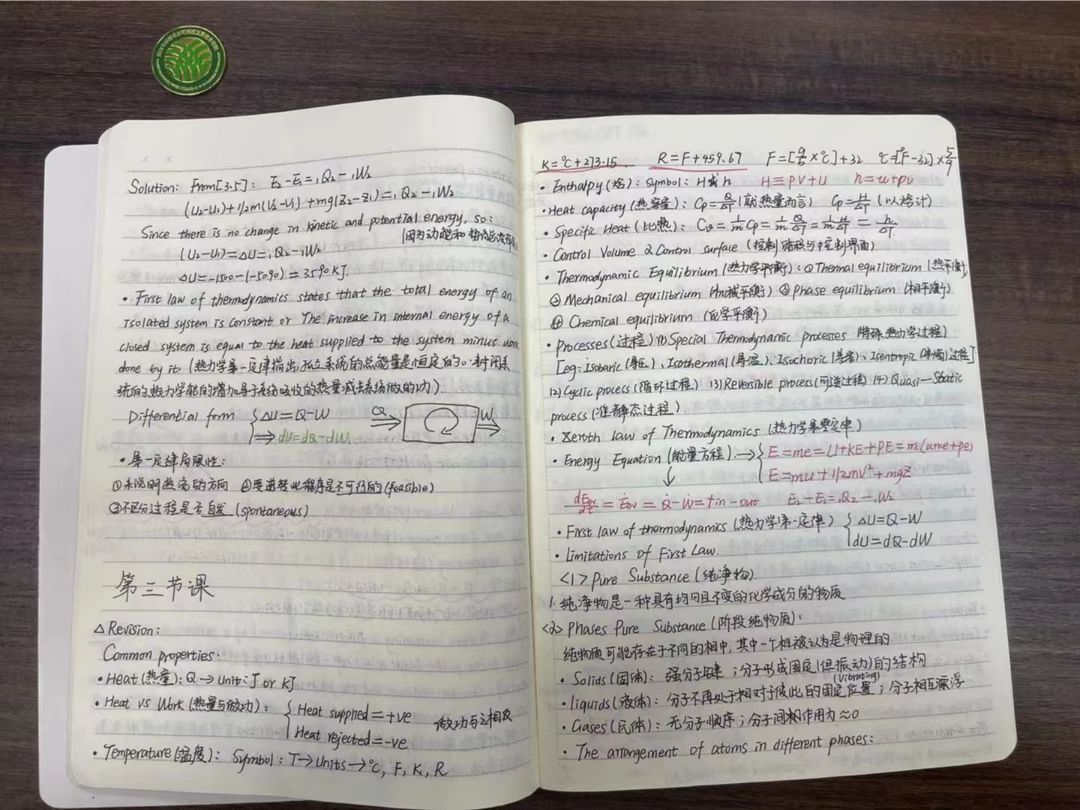 Solution: From[3.5]: E₂-E₁=₁Q₂-₁W₂
(U₂-U₁)+1/2m(V₂²-V₁²)+mg(Z₂-Z₁)=₁Q₂-₁W₂
Since there is no change in kinetic and potential energy, so:
(U₂-U₁)=ΔU=₁Q₂-₁W₂
(因为动能和势能总没有
ΔU=-1500-(-5090)=3590KJ.
• First law of thermodynamics states that the total energy of an
isolated system is constant or The increase in internal energy of a
closed system is equal to the heat supplied to the system minus work
done by it (热力学第一定律指出,孤立系统的总能量是恒定的。封闭系
统的热力学能的增加等于系统吸收的热量减去系统做的功).
Differential form {ΔU=Q-W
⇒ dU=dQ-dW.
Q W
• 第一定律局限性:
①未说明热流的方向 ②要逆转此程序是不可行的(feasible)
③不区分过程是否自发 (spontaneous)
第三节课
△Revision:
Common properties:
• Heat (热量): Q→Unit: J or KJ
• Heat vs Work (热量与做功): {Heat supplied=+ve
Heat rejected=-ve
做功与之相反
• Temperature (温度): Symbol: T→Units→℃, F, K, R
K=℃+273.15 R=F+459.67 F=[9/5×℃]+32 ℃=[F-32]×5/9
• Enthalpy (焓): Symbol: H或h H=PV+U h=u+pv
• Heat capacity (热容量): Cp=Q/ΔT (就热量而言) Cp=H/ΔT (以焓计)
• Specific Heat (比热):
• Control Volume & Control surface
• Thermodynamic Equilibrium (热力学平衡): ①Thermal equilibrium (热平衡)
②Mechanical equilibrium (机械平衡) ③Phase equilibrium (相平衡)
④ Chemical equilibrium (化学平衡)
• Processes (过程) (1) Special Thermodynamic processes (特殊热力学过程)
[eg: Isobaric (等压), Isothermal (等温), Isochoric (等容), Isentropic (等熵)过程]
(2) Cyclic process (循环过程) (3) Reversible process (可逆过程) (4) Quasi-Static
process (准静态过程).
• Zeroth law of Thermodynamics (热力学第零定律)
• Energy Equation (能量方程) → {E=me=U+KE+PE=m(u+ke+pe)
E=mu+1/2mV²+mgZ
dEcv/dt=Ėcv=Q̇-Ẇ=+in-out E₂-E₁=₁Q₂-₁W₂
• First law of thermodynamics (热力学第一定律) {ΔU=Q-W
• Limitations of First Law. dU=dQ-dW
<1> Pure Substance (纯净物)
1. 纯净物是一种具有均匀且不变的化学成分的物质
<2> Phases Pure Substance (阶段纯物质):
纯物质可能存在于不同的相中,其中一个相被认为是物理的
• Solids (固体): 强分子键;分子形成固定(但振动)的结构
(Vibrating)
• liquids (液体): 分子不再处于相对于彼此的固定位置;分子相互漂浮
• Gases (气体): 无分子顺序;分子间相互作用为≈0
• The arrangement of atoms in different phases: